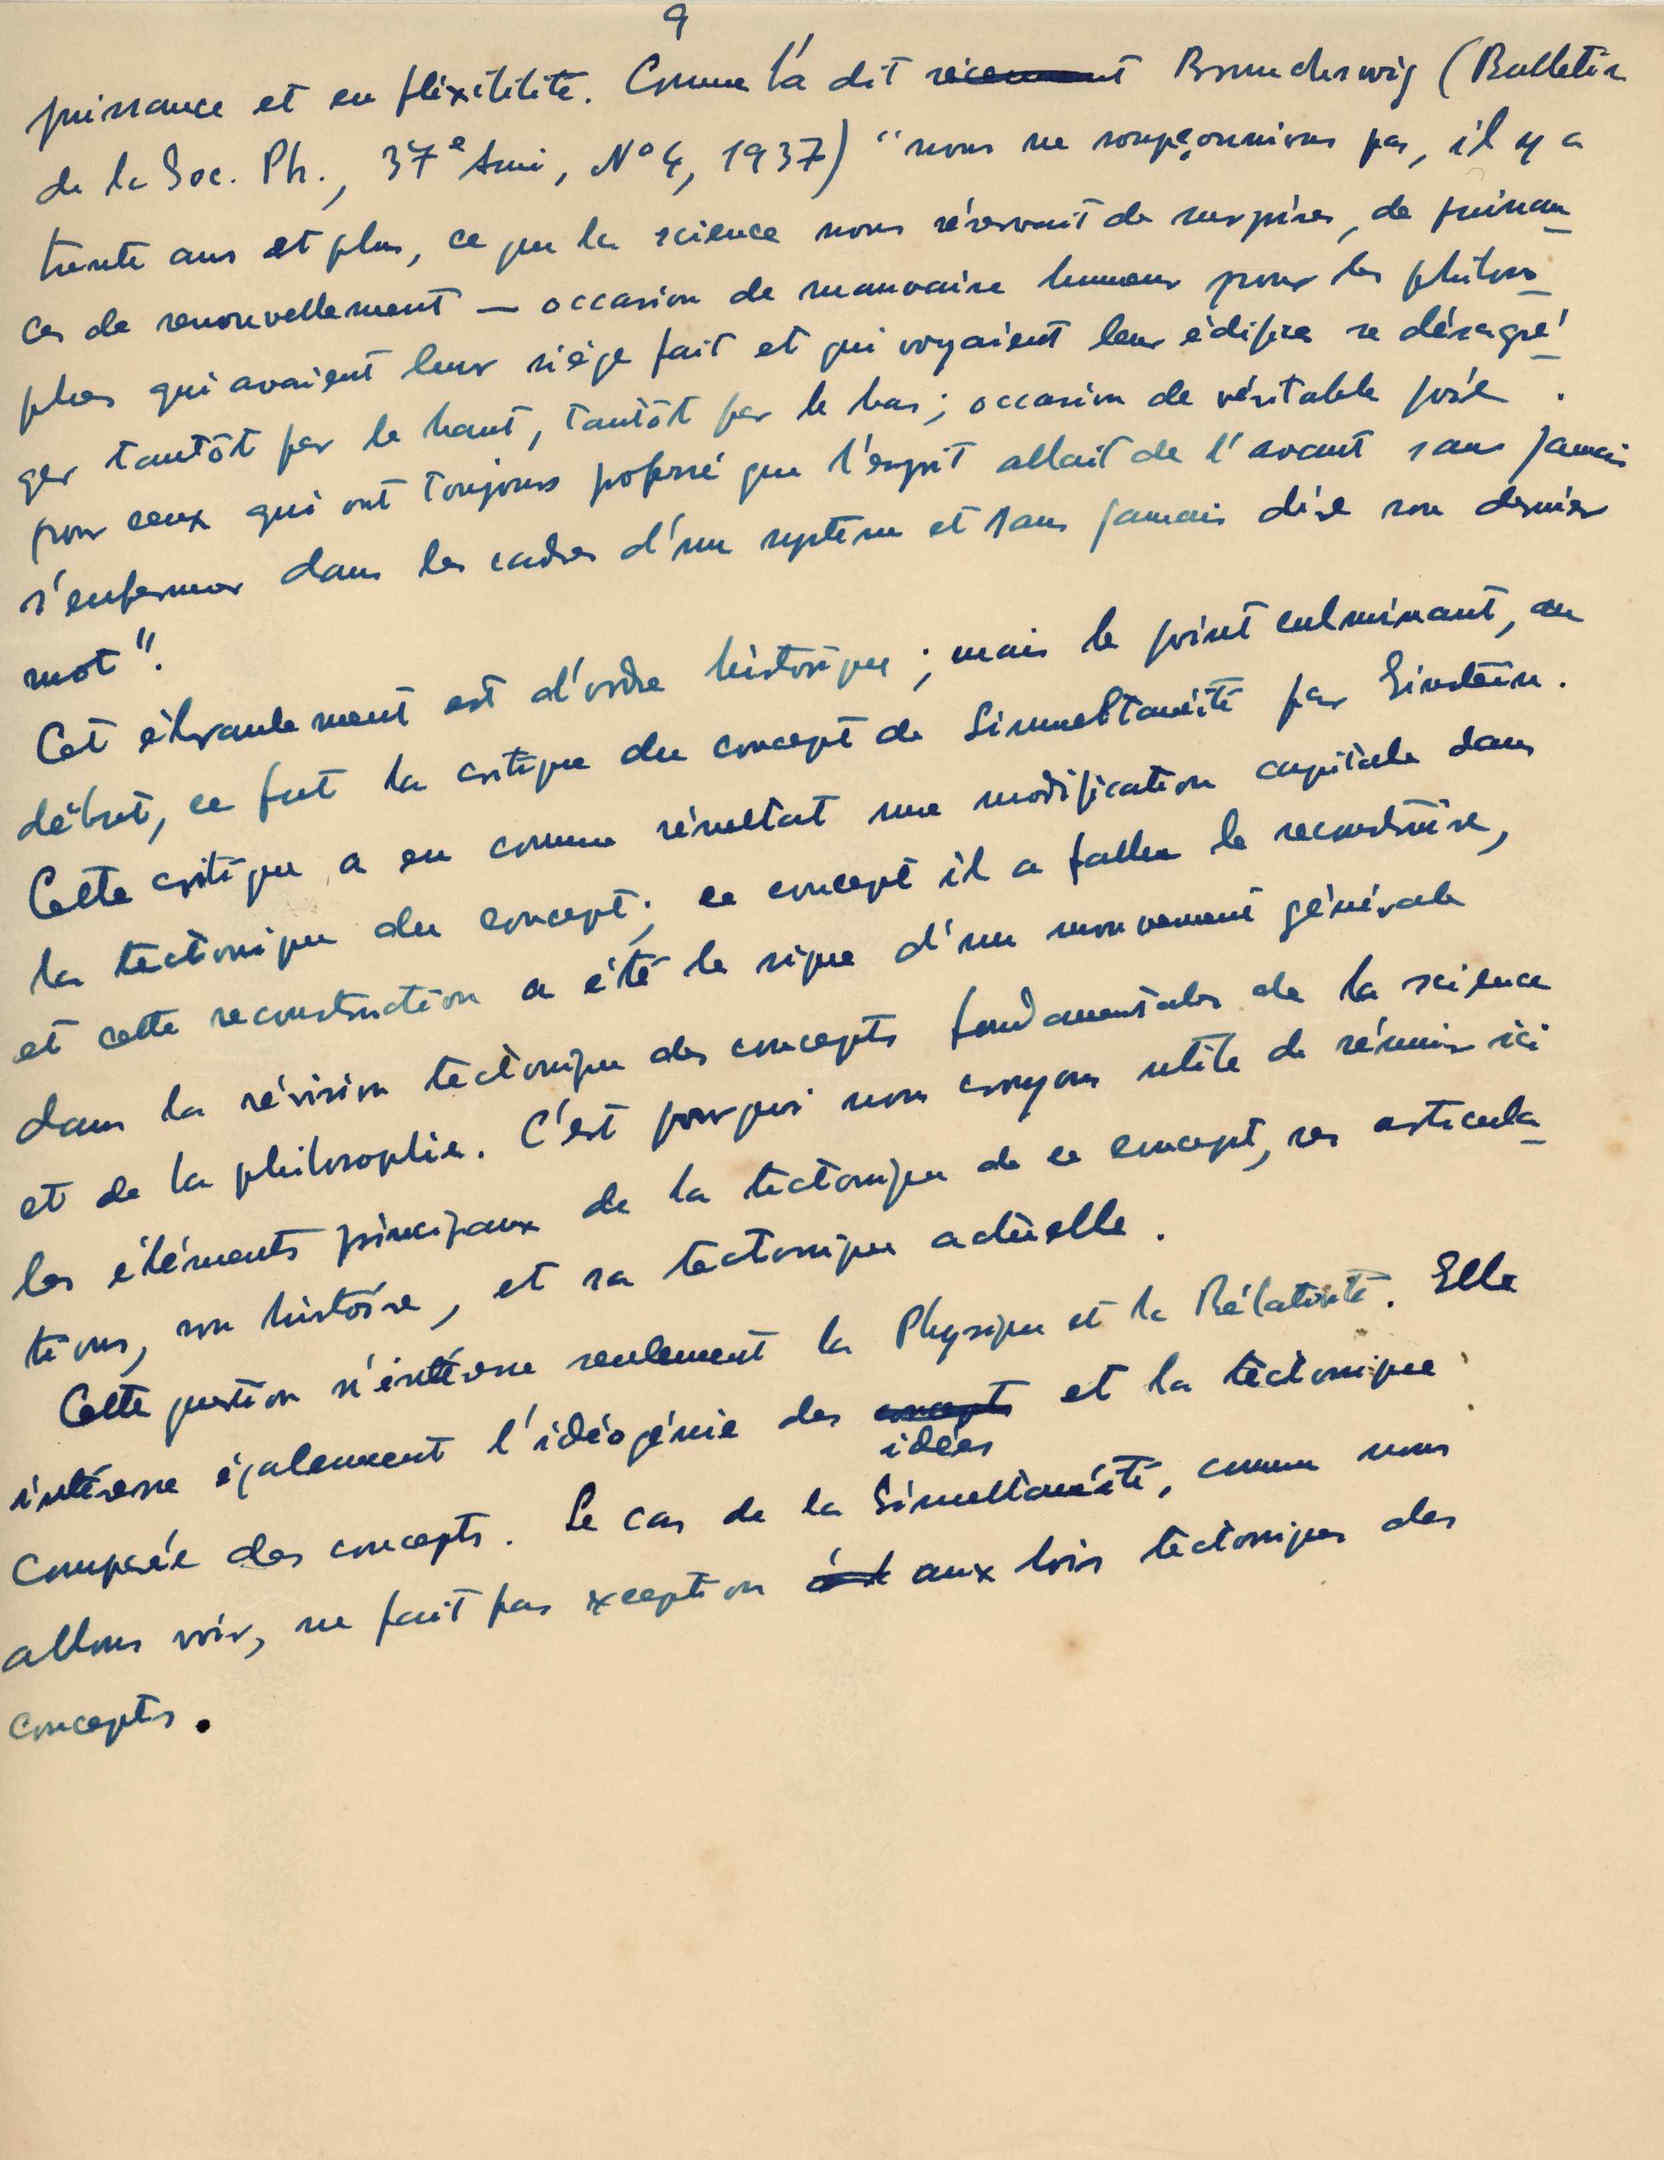 9
puissance et en fléxibilité. Comme l'a dit récemment Brunchswig (Bulletin
de la Soc. Ph., 37e Ann, No 4, 1937) "nous ne soupçonnions pas, il y a
trente ans et plus, ce que la science nous réservait de surprises, de puissan-
ces de renouvellement — occasion de mauvaise humeur pour les philoso-
phes qui avaient leur siège fait et qui voyaient leur édifice se désagré-
ger tantôt par le haut, tantôt par le bas; occasion de véritable joie
pour ceux qui ont toujours professé que l'esprit allait de l'avant sans jamais
s'enfermer dans les cadres d'un système et sans jamais dire son dernier
mot".
Cet ébranlement est d'ordre historique; mais le point culminant, au
début, ce fut la critique du concept de Simultanéité par Einstein.
Cette critique a eu comme résultat une modification capitale dans
la tectonique du concept; ce concept il a fallu le reconstruire,
et cette reconstruction a été le signe d'un mouvement générale
dans la révision tectonique des concepts fondamentales de la science
et de la philosophie. C'est pourquoi nous croyons utile de réunir ici
les éléments principaux de la tectonique de ce concept, ses articula-
tions, son histoire, et sa tectonique actuelle.
Cette question n'intéresse seulement la Physique et la Rélativité. Elle
intéresse également l'idéogénie des concepts et la tectonique
idées
comparée des concepts. Le cas de la Simultanéité, comme nous
allons voir, ne fait pas exception aux lois tectoniques des
concepts.